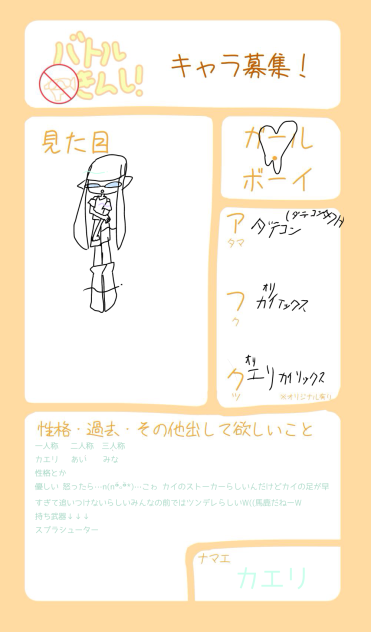 バトル
きんし!
キャラ募集！
見た目
ガール
・
ボーイ
アタマ
ダテコン
フク
オリ
ガイアックス
クツ
オリ
エリカイリックス
※オリジナル有り
性格・過去・その他出して欲しいこと
一人称 二人称 三人称
カエリ あい みな
性格とか
優しい 怒ったら…
カイのストーカーらしいんだけどカイの足が早
すぎて追いつけないらしいみんなの前ではツンデレらしいW((馬鹿だねーW
持ち武器↓↓↓
スプラシューター
ナマエ
カエリ